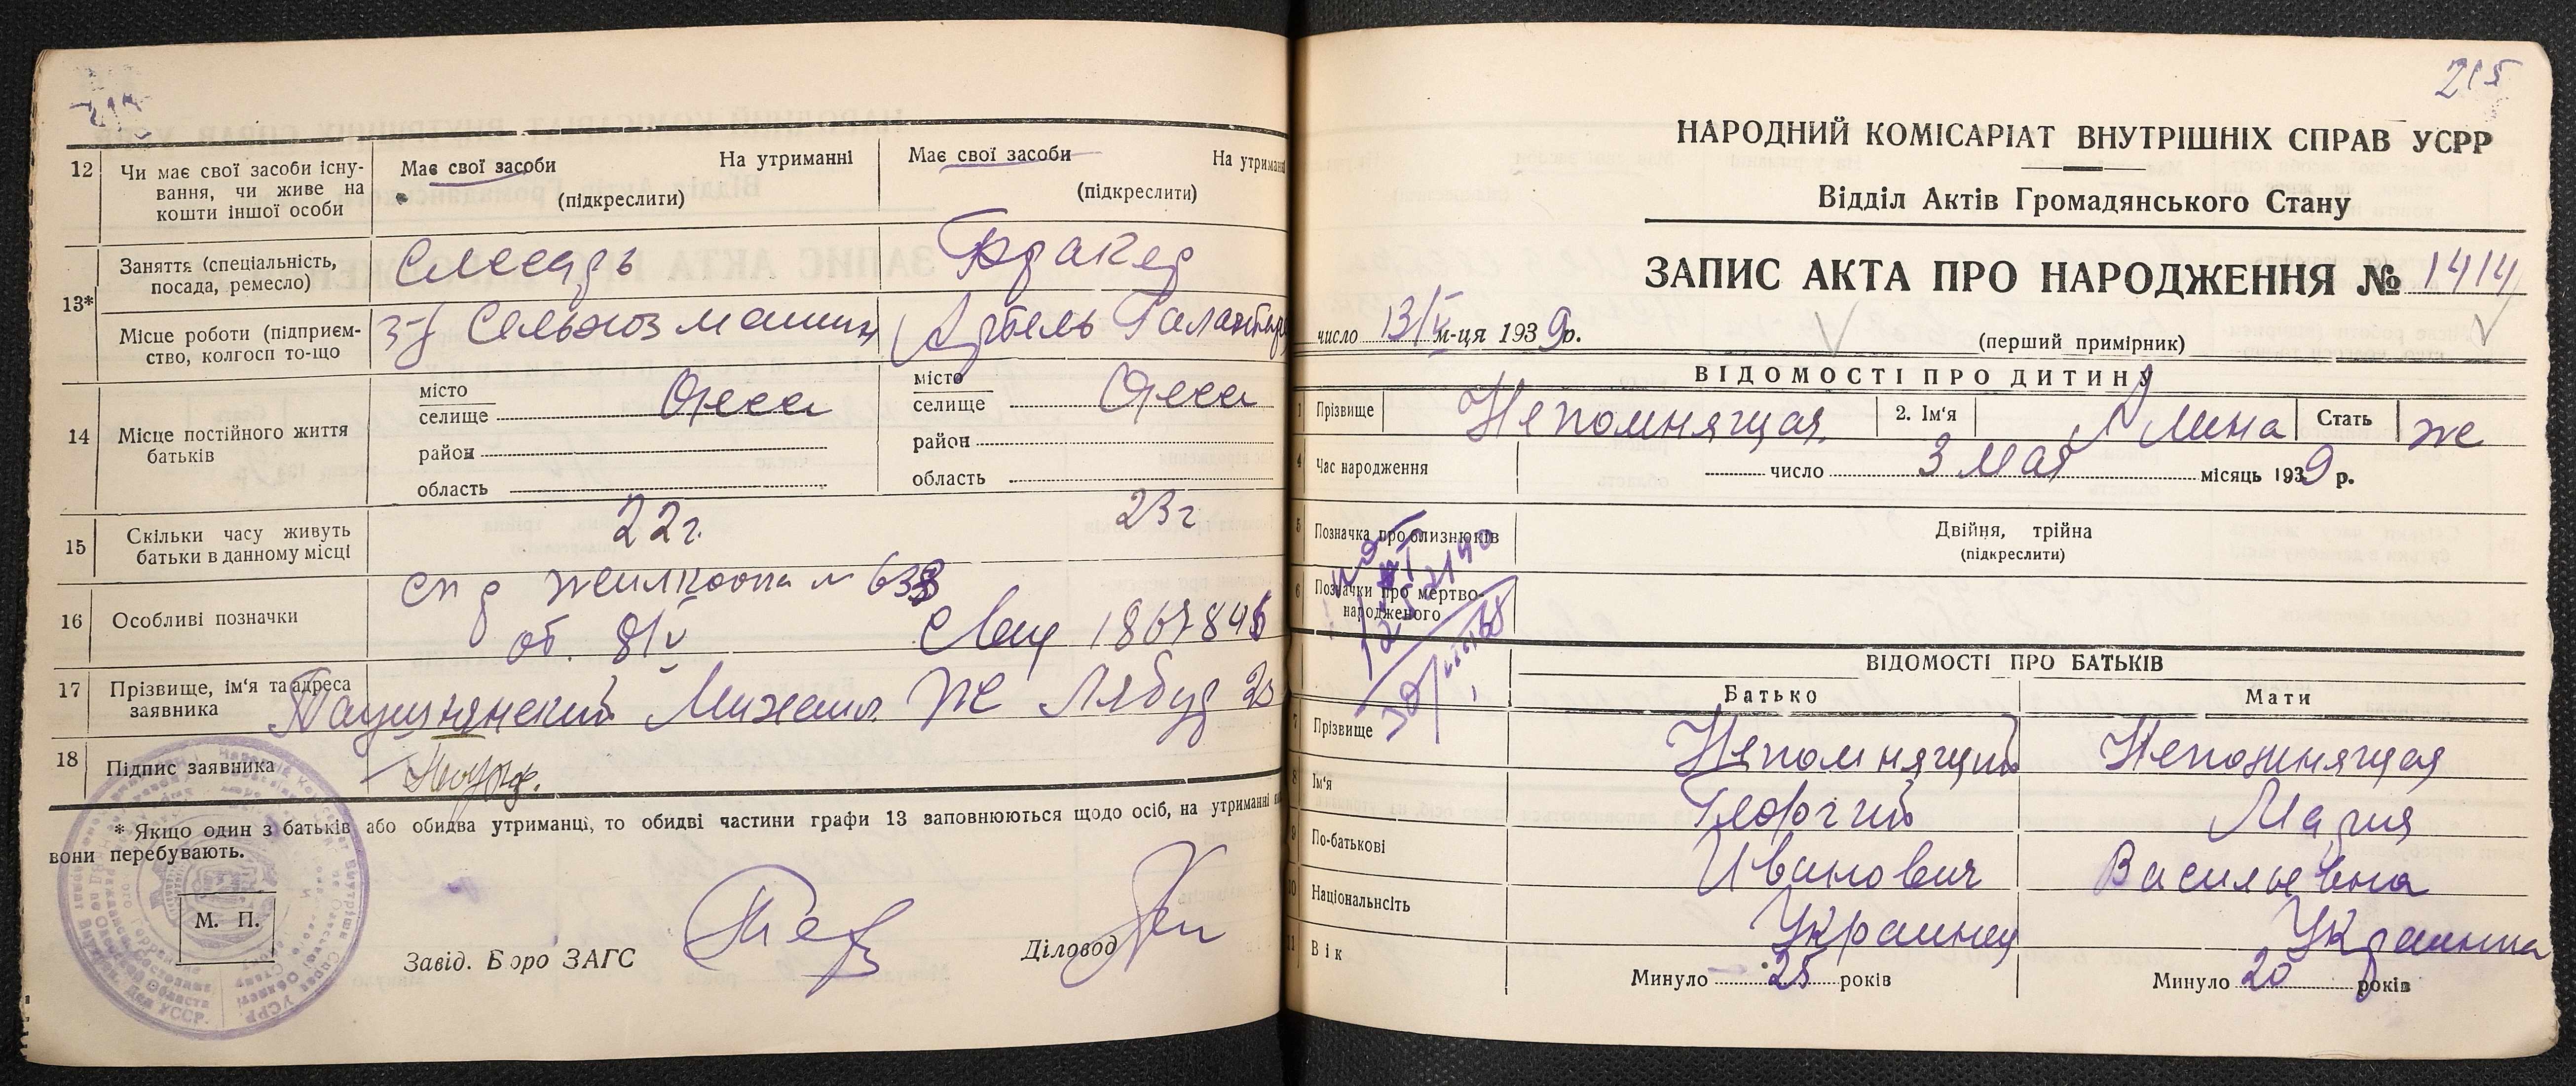 12
Чи має свої засоби існу-
вання, чи живе на
кошти іншої особи
Має свої засоби На утриманні
(підкреслити)
Має свої засоби На утриман
(підкреслити)
13*
Заняття (спеціальність,
посада, ремесло)
Слесарь
Бракер
Місце роботи (підприєм-
ство, колгосп то-що
з-д Сельхоз машин
Артель
14
Місце постійного життя
батьків
місто
селище Одесса
район
область
місто
селище Одесса
район
область
15
Скільки часу живуть
батьки в данному місці
22 г.
23 г
16
Особливі позначки
спр Жилкоопа № 633
от. 8/V
17
Прізвище, ім'я та адреса
заявника
Михаил
18
Підпис заявника
* Якщо один з батьків або обидва утриманці, то обидві частини графи 13 заповнюються щодо осіб, на утриманні
вони перебувають.
М. П.
Завід. Бюро ЗАГС
Діловод
215
НАРОДНИЙ КОМІСАРІАТ ВНУТРІШНІХ СПРАВ УСРР
Відділ Актів Громадянського Стану
ЗАПИС АКТА ПРО НАРОДЖЕННЯ № 1414
число 13/V м-ця 1939р.
(перший примірник)
ВІДОМОСТІ ПРО ДИТИНУ
1 Прізвище Непомнящая 2. Ім'я Алина Стать же
4 Час народження число 3 Мая місяць 1939 р.
5 Позначка про близнюків
Двійня, трійня
(підкреслити)
6 Позначки про мертво-
народженого
ВІДОМОСТІ ПРО БАТЬКІВ
Батько Мати
7 Прізвище Непомнящий Непомнящая
8 Ім'я Георгий Мария
9 По-батькові Иванович Васильевна
10 Національнсіть Украинец Украинка
11 Вік Минуло 25 років Минуло 20 років